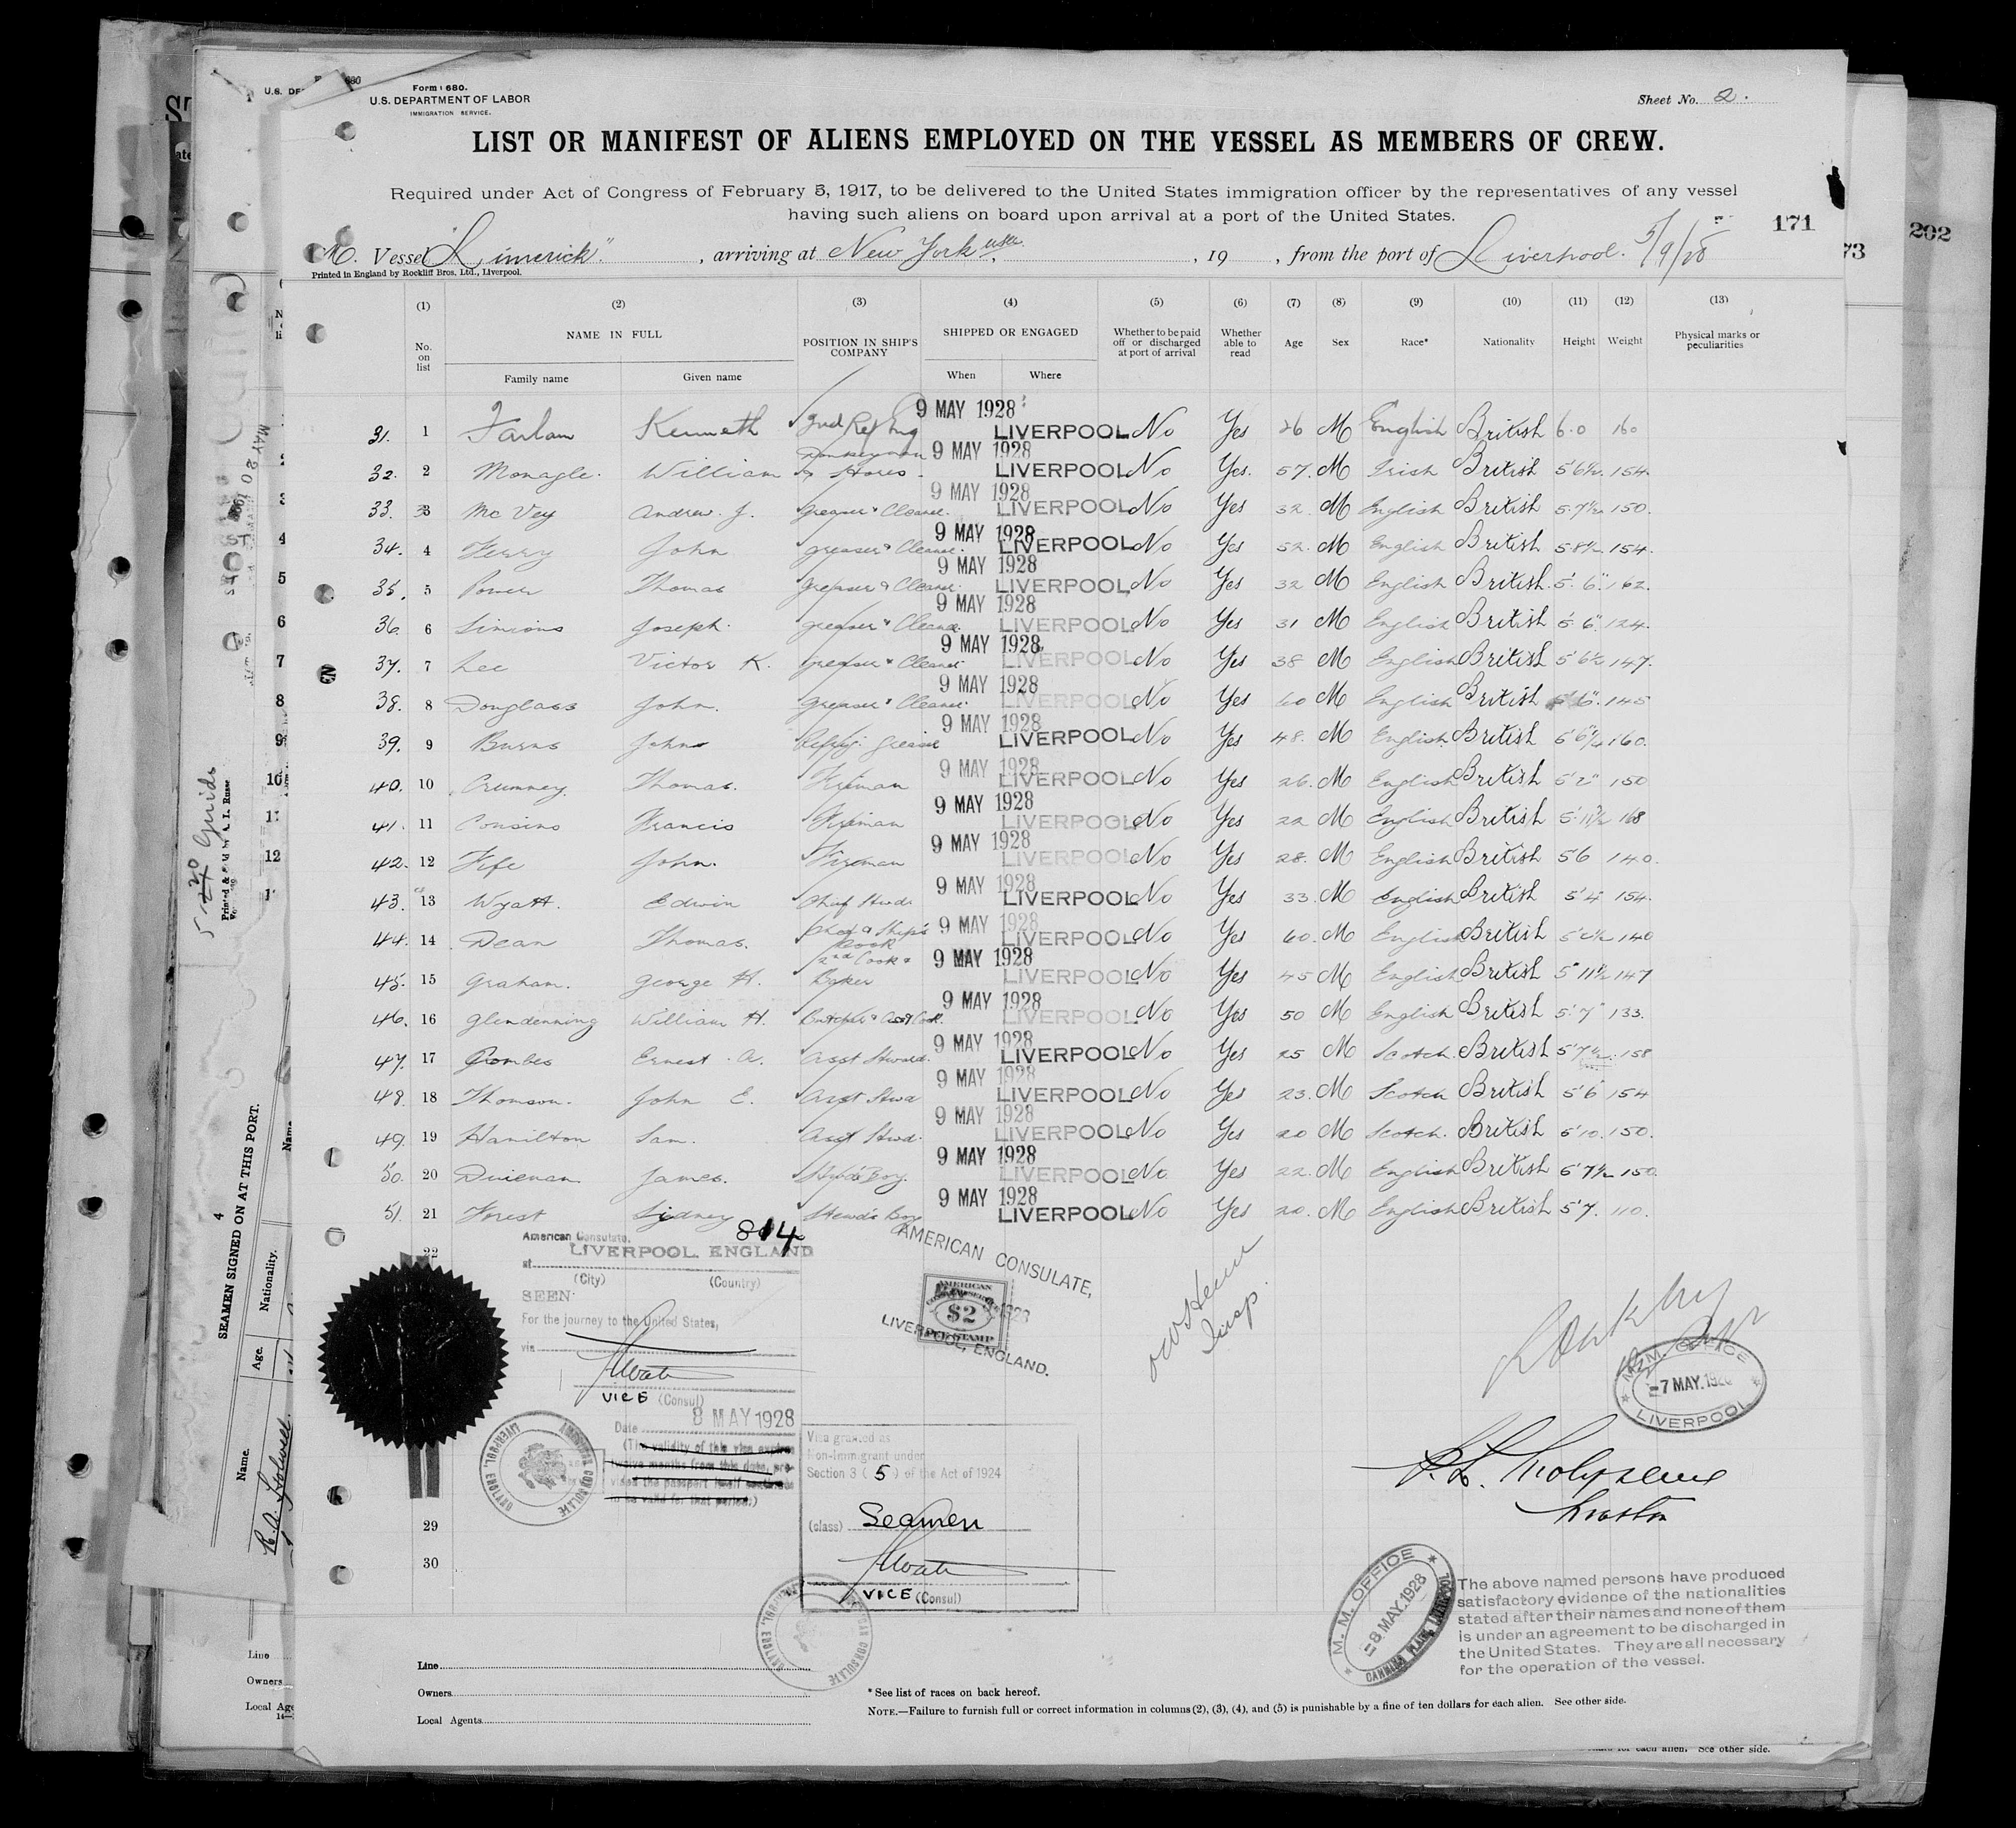 Form 680.
U.S. DEPARTMENT OF LABOR
IMMIGRATION SERVICE.
Sheet No. 2.
LIST OR MANIFEST OF ALIENS EMPLOYED ON THE VESSEL AS MEMBERS OF CREW.
Required under Act of Congress of February 5, 1917, to be delivered to the United States immigration officer by the representatives of any vessel
having such aliens on board upon arrival at a port of the United States.
171
202
73
M. Vessel "Limerick", arriving at New York, 19 , from the port of Liverpool. 5/9/28
Printed in England by Rockliff Bros. Ltd., Liverpool.
(1) (2) (3) (4) (5) (6) (7) (8) (9) (10) (11) (12) (13)
No. on list NAME IN FULL Family name Given name POSITION IN SHIP'S COMPANY SHIPPED OR ENGAGED When Where Whether to be paid off or discharged at port of arrival Whether able to read Age Sex Race* Nationality Height Weight Physical marks or peculiarities
31. 1 Farlam Kenneth 2nd Ref Eng 9 MAY 1928 LIVERPOOL No Yes 26 M English British 6.0 160
32. 2 Monagle. William Donkeyman & Stores 9 MAY 1928 LIVERPOOL No Yes. 57. M Irish British 5'6½ 154
33. 3 McVey Andrew. J. Greaser & Cleaner. 9 MAY 1928 LIVERPOOL No Yes 32 M English British 5.7½ 150.
34. 4 Ferry John greaser & Cleaner. 9 MAY 1928 LIVERPOOL No Yes 52. M English British 5.8½ 154.
35. 5 Power Thomas greaser & Cleaner. 9 MAY 1928 LIVERPOOL No Yes 32 M English British 5'. 6" 162.
36. 6 Simions Joseph. greaser & Cleaner. 9 MAY 1928 LIVERPOOL No Yes 31 M English British 5'6" 124.
37. 7 Lee Victor K. greaser & Cleaner 9 MAY 1928 LIVERPOOL No Yes 38 M English British 5'6½ 147.
38. 8 Douglass John. Greaser & Cleaner. 9 MAY 1928 LIVERPOOL No Yes 60 M English British 5'6". 145
39. 9 Burns John Refrig. Greaser 9 MAY 1928 LIVERPOOL No Yes 48. M English British 160.
40. 10 Crumney. Thomas. Fireman 9 MAY 1928 LIVERPOOL No Yes 26. M English British 5'2" 150
41. 11 Cousins Francis Fireman 9 MAY 1928 LIVERPOOL No Yes 22 M English British 5'.11½ 168
42. 12 Fife John. Fireman 9 MAY 1928 LIVERPOOL No Yes 28. M English British 5 6 140.
43. 13 Wyatt. Edwin Chief Stwd 9 MAY 1928 LIVERPOOL No Yes 33. M English British 5'4 154.
44. 14 Dean Thomas. Chef & Ship's Cook 9 MAY 1928 LIVERPOOL No Yes 60. M English British 140
45. 15 Graham. George H. 2nd Cook & Baker 9 MAY 1928 LIVERPOOL No Yes 45 M English British 5'11½ 147
46. 16 Glendenning William H. Butcher & Asst Cook. 9 MAY 1928 LIVERPOOL No Yes 50 M English British 5'.7" 133.
47. 17 Combes Ernest. A. Asst Steward. 9 MAY 1928 LIVERPOOL No Yes 25 M Scotch. British 5'7½ 158
48. 18 Thomson. John E. Asst Stwd 9 MAY 1928 LIVERPOOL No Yes 23. M Scotch British 5'6 154
49. 19 Hamilton Sam. Asst Stwd. 9 MAY 1928 LIVERPOOL No Yes 20 M Scotch. British 5'10. 150.
50. 20 James. Stwd's Boy. 9 MAY 1928 LIVERPOOL No Yes 22. M English British 5'7½ 150.
51. 21 Forest Sidney Stewd's Boy 9 MAY 1928 LIVERPOOL No Yes 20. M English British 5'7. 110.
22
29
30
American Consulate. 814
at LIVERPOOL, ENGLAND
(City) (Country)
SEEN
For the journey to the United States,
via
VICE (Consul)
Date 8 MAY 1928
(The validity of this visa expires
twelve months from this date, pro-
vided the passport itself continues
to be valid for that period.)
AMERICAN CONSULATE,
AMERICAN
$2
FEE STAMP
LIVERPOOL, ENGLAND.
Visa granted as
Non-immigrant under
Section 3 ( 5 ) of the Act of 1924
(class) Seamen
VICE (Consul)
AMERICAN CONSULATE LIVERPOOL, ENGLAND
Insp.
M.M. OFFICE
7 MAY. 1928
LIVERPOOL
Master
M. M. OFFICE
8 MAY. 1928
CANNING PLACE, LIVERPOOL
The above named persons have produced
satisfactory evidence of the nationalities
stated after their names and none of them
is under an agreement to be discharged in
the United States. They are all necessary
for the operation of the vessel.
Line
Owners
Local Agents
* See list of races on back hereof.
NOTE.—Failure to furnish full or correct information in columns (2), (3), (4), and (5) is punishable by a fine of ten dollars for each alien. See other side.
for each alien. See other side.
4
SEAMEN SIGNED ON AT THIS PORT.
Name. Age. Nationality.
Line
Owners